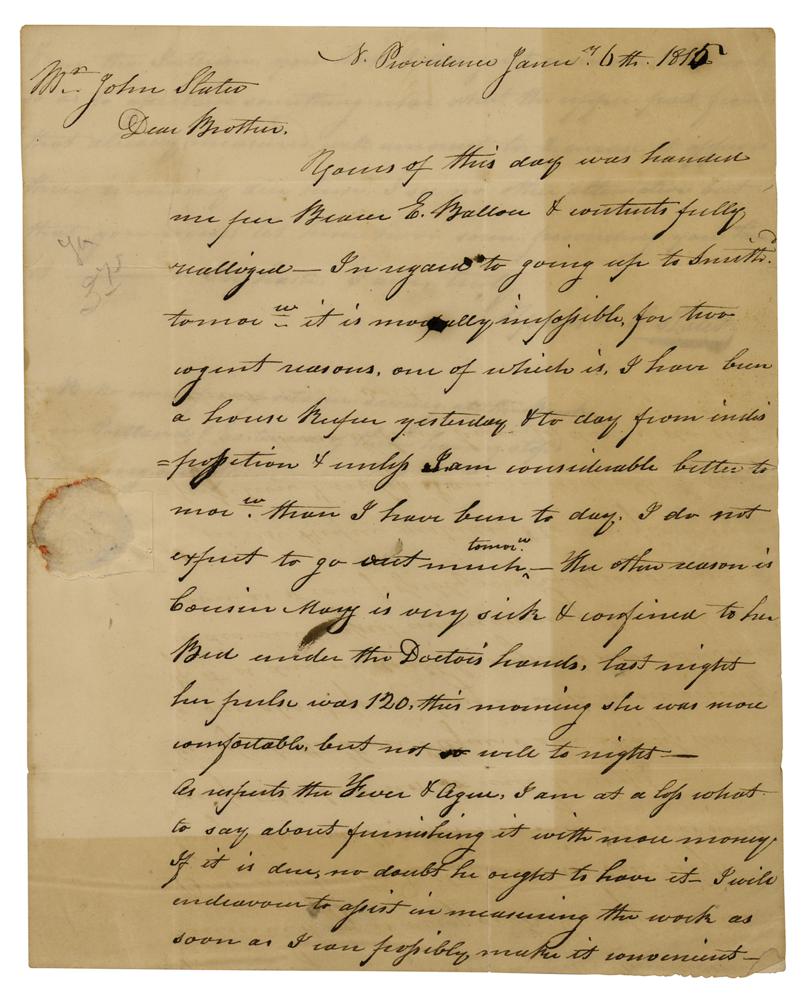 N. Providence Janu.y 6th. 1815
Mr. John Slater
Dear Brother.
Yours of this day was handed
me per Bearer E. Ballou & contents fully
realized — In regard to going up to Smithd.
tomorw. it is morally impossible, for two
cogent reasons, one of which is, I have been
a house keeper yesterday & to day from indis
=position & unless I am considerable better to
morw. than I have been to day, I do not
expect to go out much tomorw. — The other reason is
Cousin Mary is very sick & confined to her
Bed under the Doctors hands, last night
her pulse was 120, this morning she was more
comfortable, but not so well to night —
As respects the Fever & Ague, I am at a loss what
to say about furnishing it with more money
If it is due, no doubt he ought to have it — I will
endeavour to assist in measuring the work as
soon as I can possibly make it convenient —